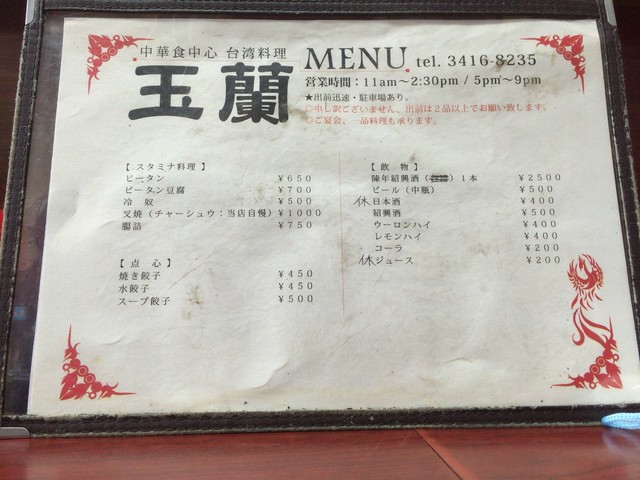 中華食中心 台湾料理
玉蘭
MENU. tel. 3416-8235
営業時間:11am~2:30pm / 5pm~9pm
★出前迅速・駐車場あり。
◎申し訳ございません、出前は2品以上でお願い致します。
◎ご宴会、一品料理も承ります。
【 スタミナ料理 】
ピータン ¥650
ピータン豆腐 ¥700
冷 奴 ¥500
叉焼(チャーシュウ:当店自慢) ¥1000
腸詰 ¥750
【 点 心 】
焼き餃子 ¥450
水餃子 ¥450
スープ餃子 ¥500
【 飲 物 】
陳年紹興酒( )1本 ¥2500
ビール(中瓶) ¥500
休 日本酒 ¥400
紹興酒 ¥500
ウーロンハイ ¥400
レモンハイ ¥400
コーラ ¥200
休 ジュース ¥200